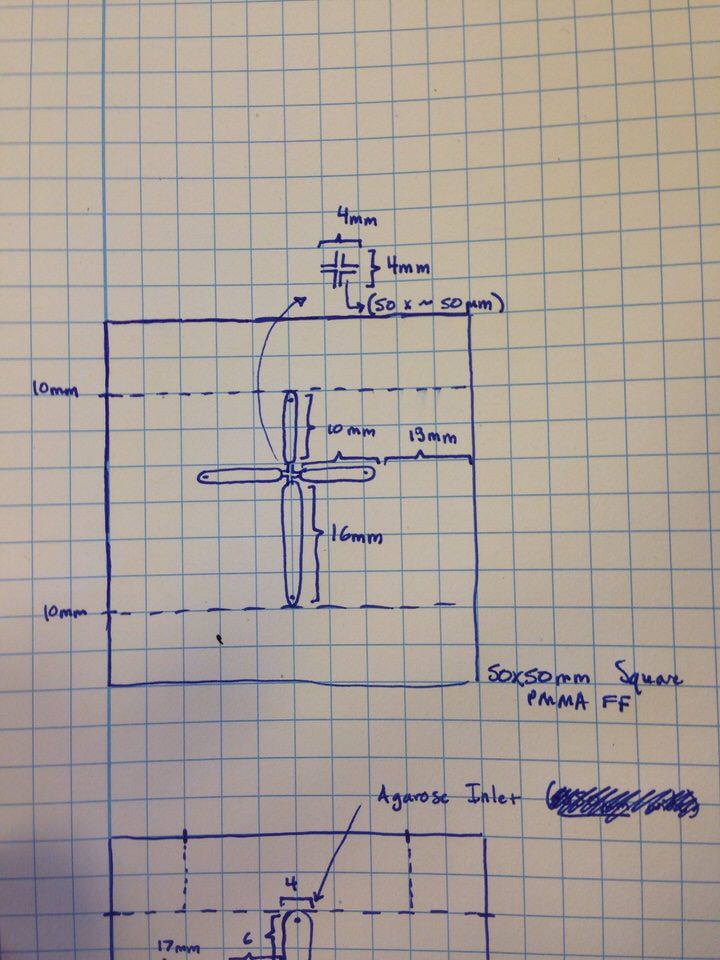 4mm
4mm
(50 x ~ 50 µm)
10mm
10 mm
13mm
16mm
10mm
50x50mm Square
PMMA FF
Agarose Inlet
4
6
17mm